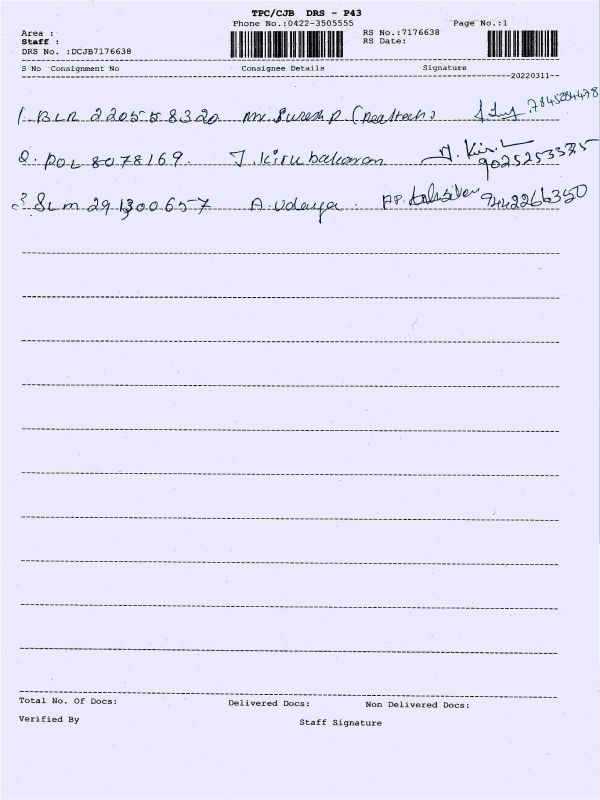 TPC/CJB DRS - P43
Phone No.:0422-3505555 Page No.:1
Area : RS No.:7176638
Staff : RS Date:
DRS No. :DCJB7176638
S No Consignment No Consignee Details Signature
20220311
1. BLR 220558320 Mr. Suresh P (Realtech)
2. POL 8078169. J. Kirubakaran 9025253335
3. SLM 291300657 A. Udaya 9442266350
Total No. Of Docs: Delivered Docs: Non Delivered Docs:
Verified By Staff Signature